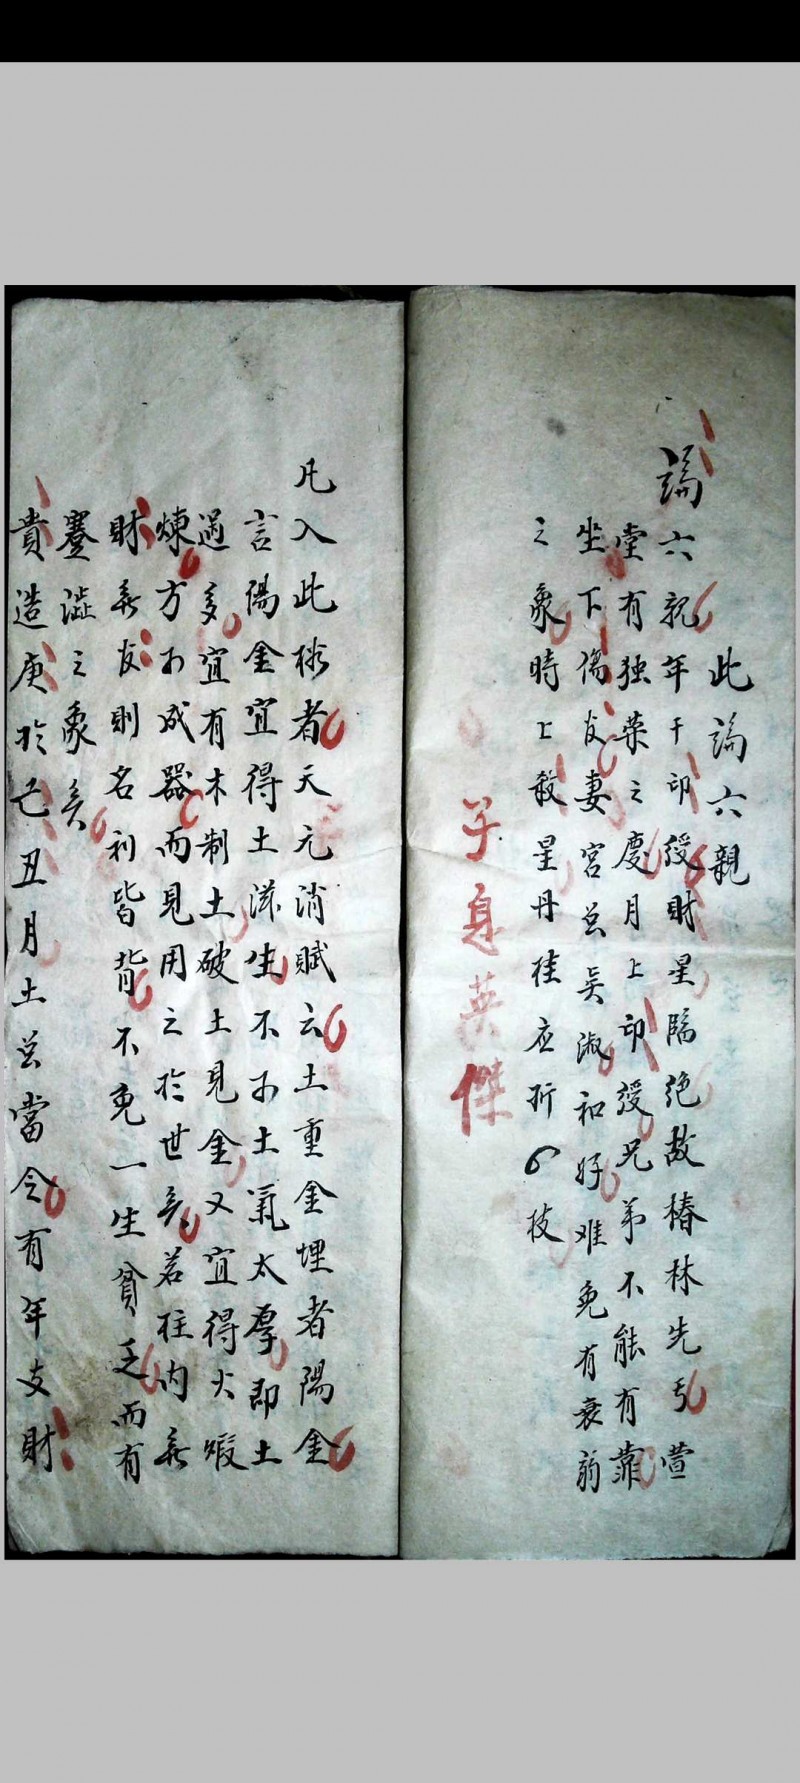 此論六親
論六親年干印綬財星臨絶故椿林先丂萱
堂有独荣之慶月上印綬兄弟不能有靠
坐下傷官妻宮总吴淑和好难免有衰弱
之象時上殺星丹桂应折枝
子息英傑
凡入此格者天元消賦云土重金埋者陽金
言陽金宜得土滋生不可土氣太厚即土
過多宜有木制土破土見金又宜得火煅
煉方可成器而見用之於世矣若柱内無
財無官則名利皆背不免一生貧乏而有
蹇澁之象矣
貴造庚於己丑月土总當令有年支財